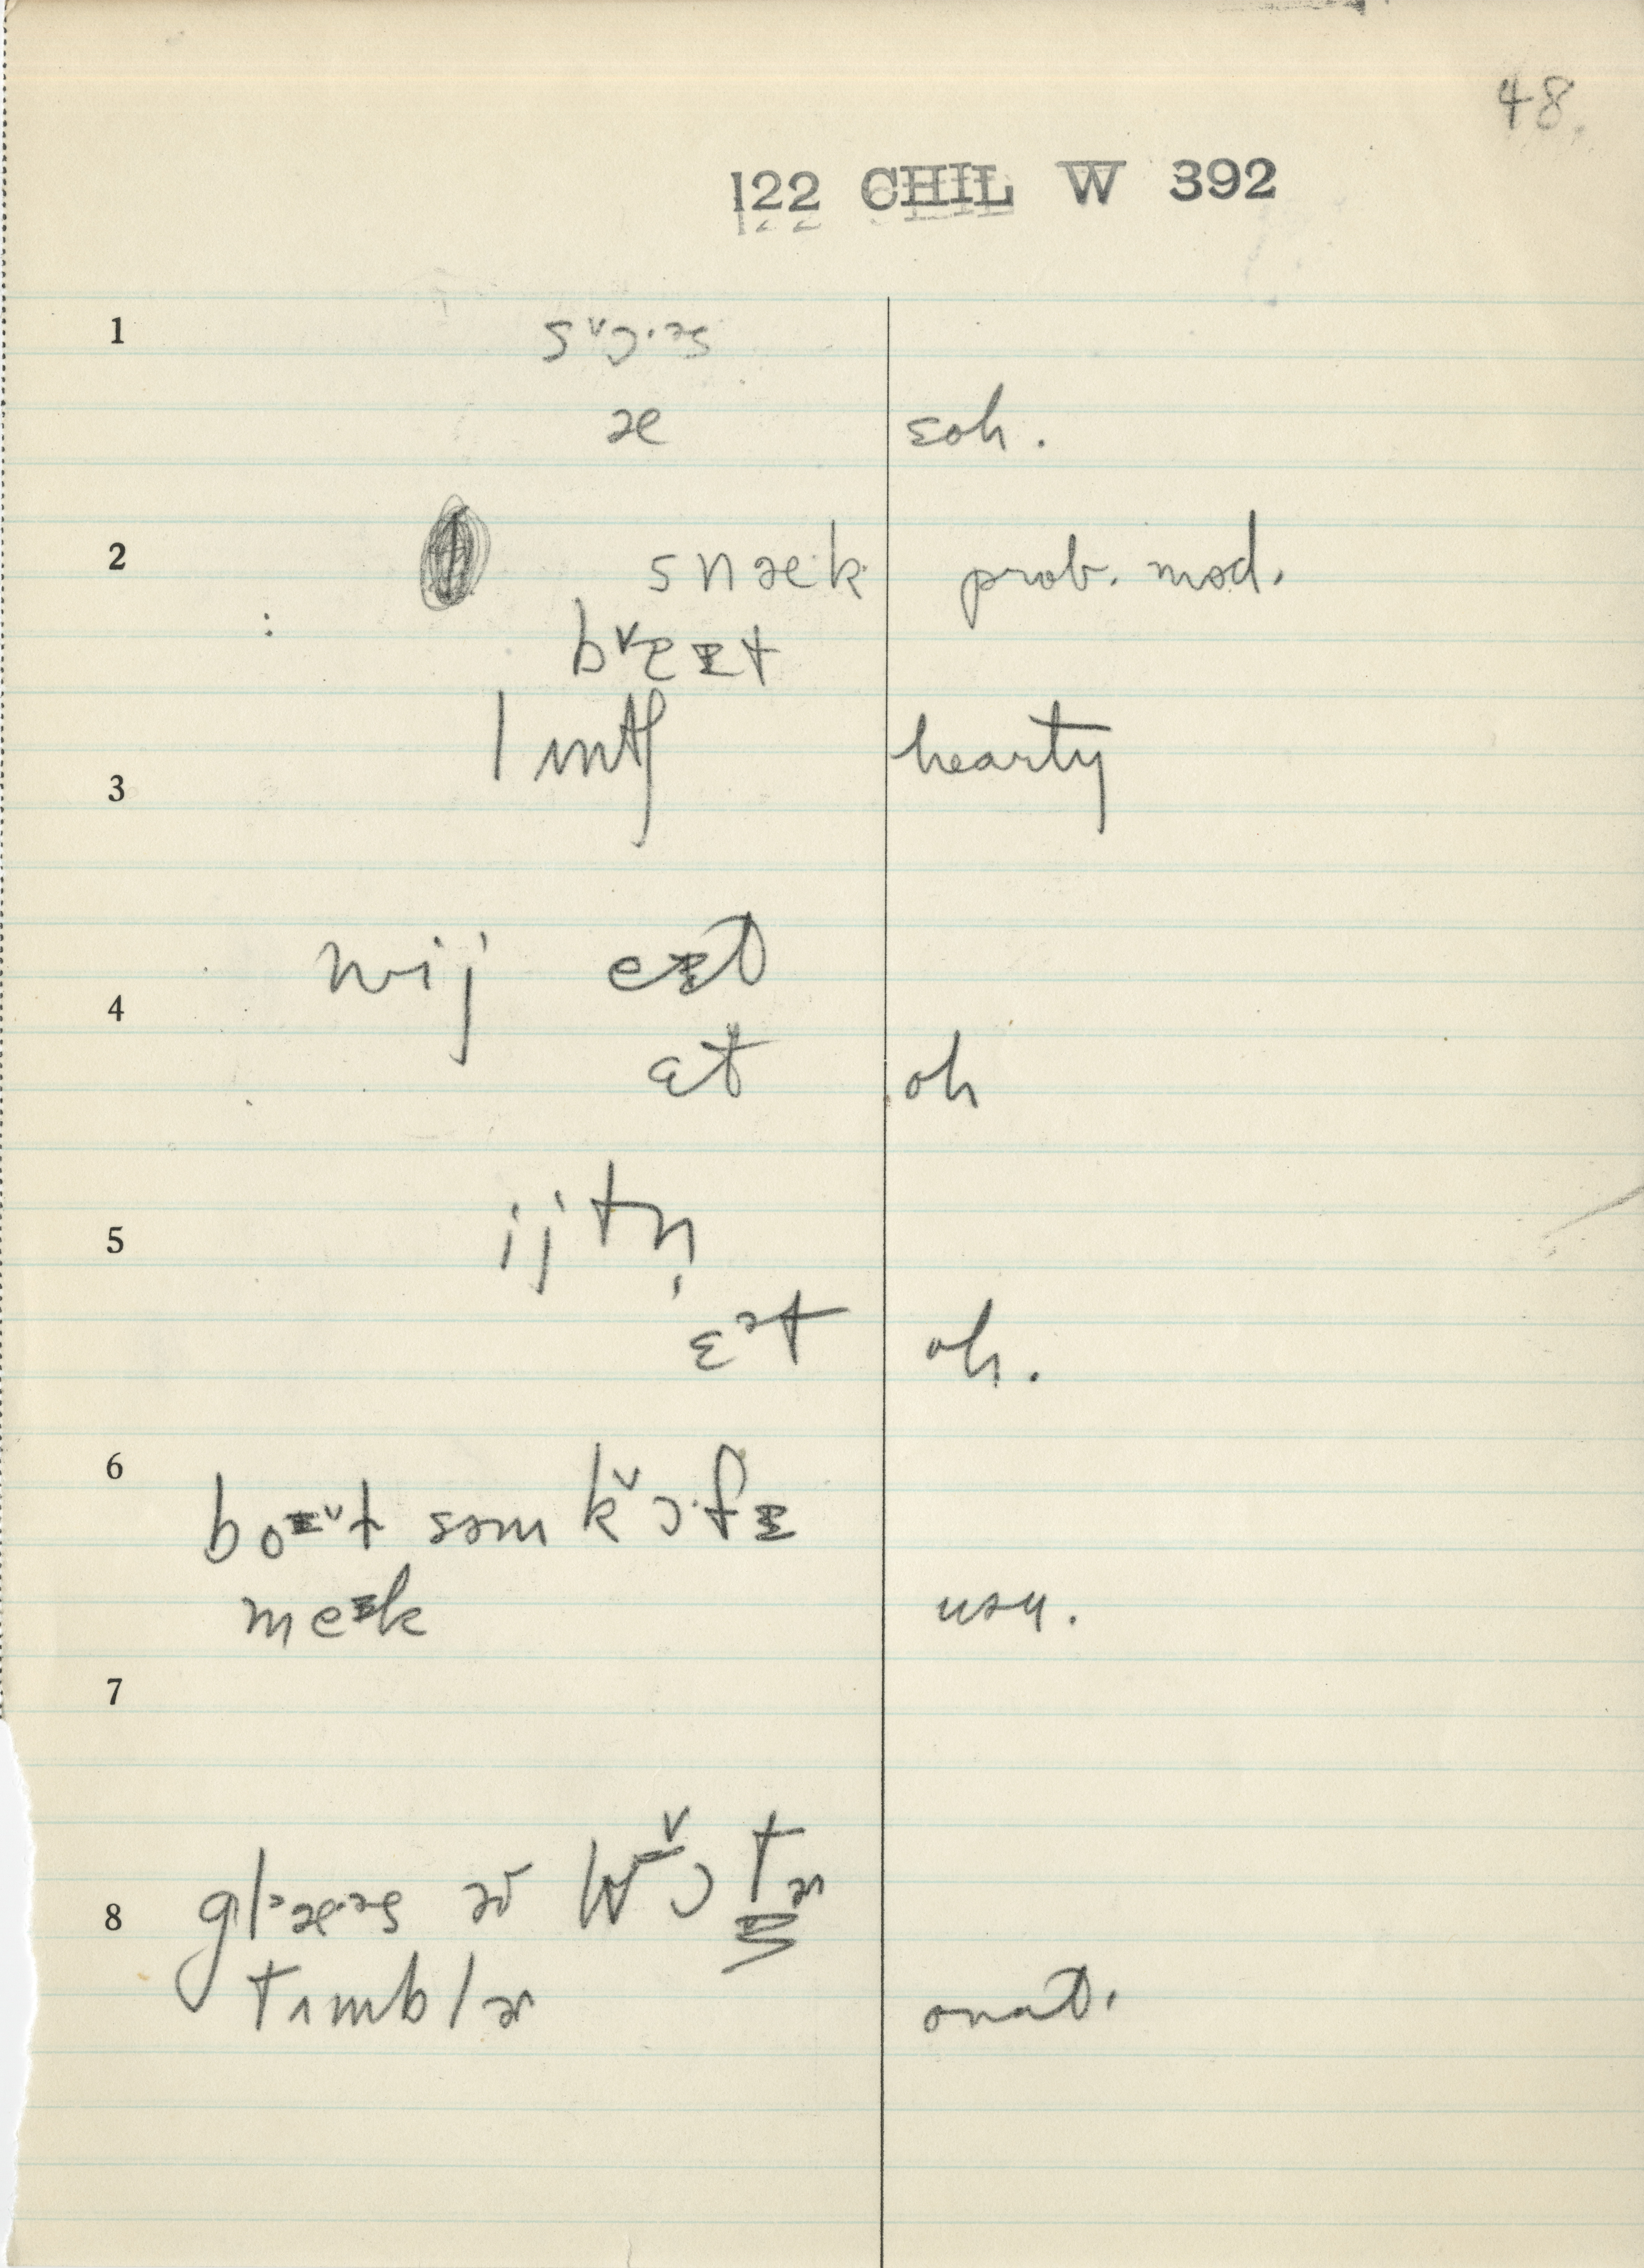 48.
122 CHIL W 392
1 sᵛɔ·ᵊs
æ ɛoh.
2 snæ·k prob. mod.
:
bᵛeɪt
3 lʌntʃ hearty
wij eɪt
4
ɛt oh
5 ijtn̩
ɛᵊt oh.
6
boᵛt səm kᵛɔ·fɪ
meɪk usu.
7
8 glᵊæ·ᵊs əv wᵛɔtɚ
tʌmblɚ onat.